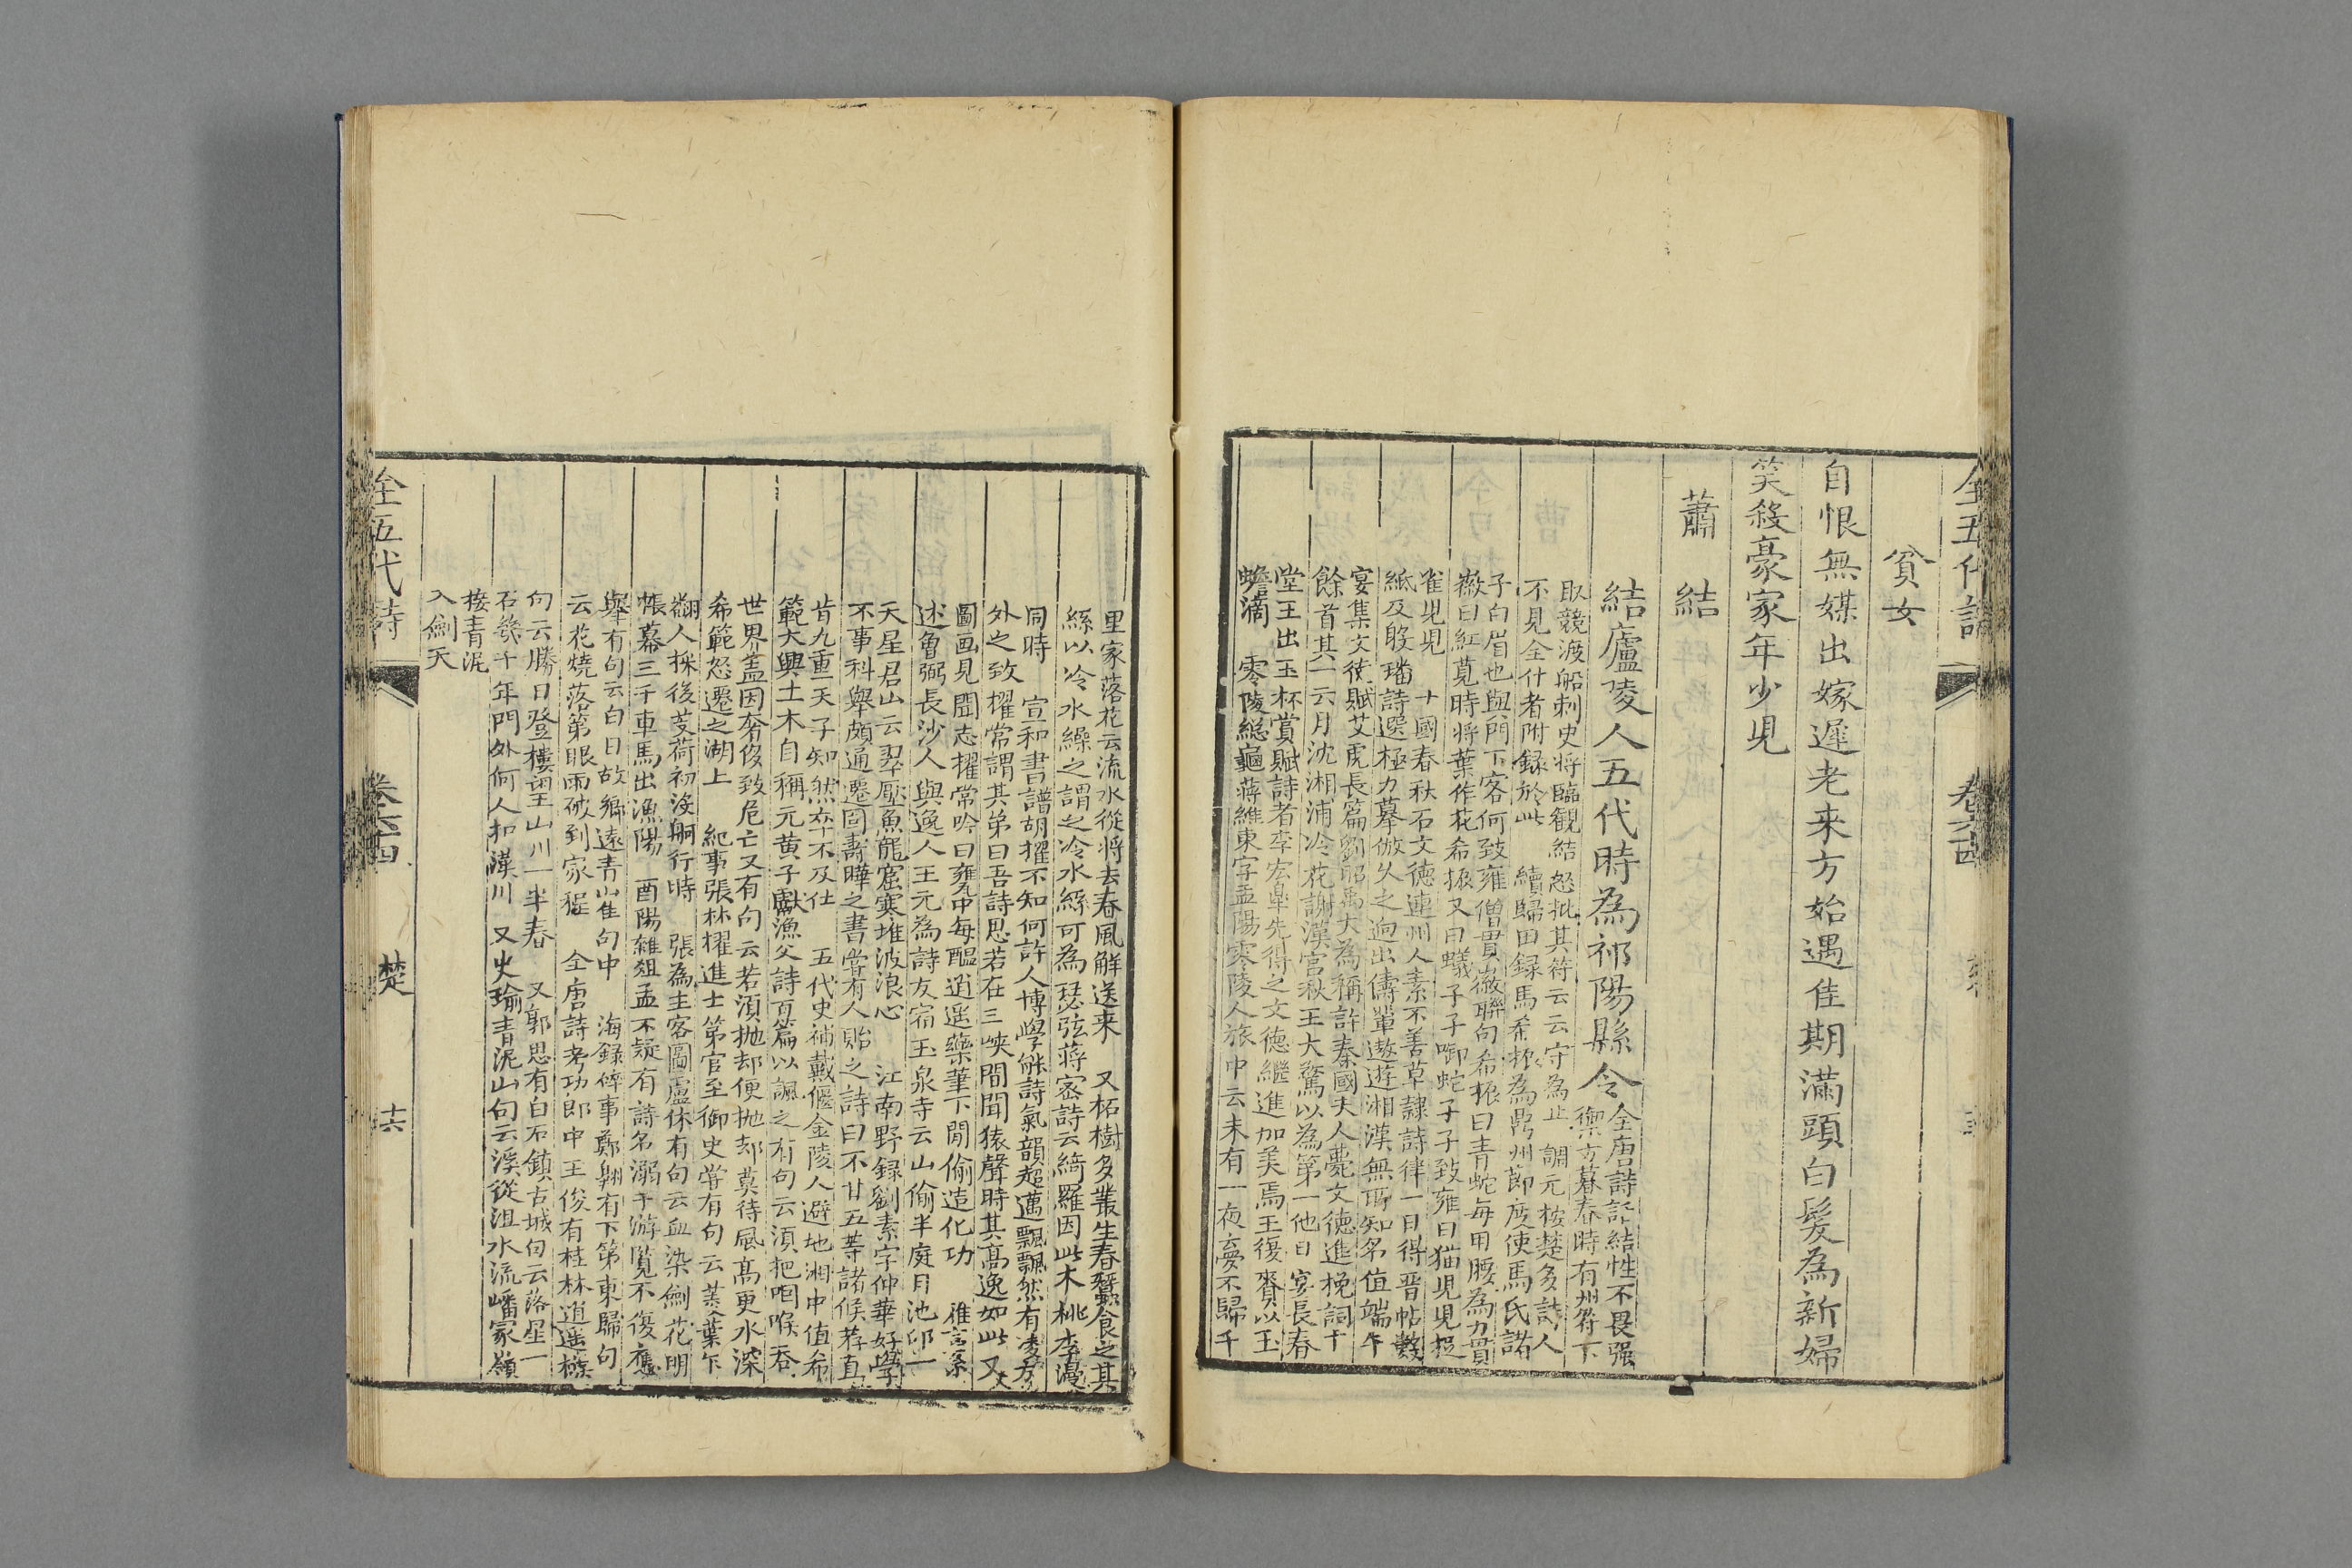 貧女
自恨無媒出嫁遲老来方始遇佳期滿頭白髮為新婦
笑殺豪家年少児
蕭結
結廬陵人五代時為祁陽縣令
全唐詩話結性不畏强
禦方暮春時有州符下
取競渡船刺史将臨観結怒批其符云云守為止 調元桉楚多詩人
不見全什者附録於此 續歸田録馬希振為鼎州節度使馬氏諸
子白眉也與門下客何致雍僧貫微聯句希振曰青蛇每用腰為力貫
微曰紅莧時将葉作花希振又曰蟻子子啣蛇子子致雍曰猫児児捉
雀児児 十國春秋石文德連州人素不善草隷詩律一日得晋帖數
紙及殷璠詩選極力摹倣久之逈出儔輩遨遊湘漢無所知名值端午
宴集文徳賦艾虎長篇劉昭禹大為稱許秦國夫人薨文徳進挽詞十
餘首其一云月沈湘浦冷花謝漢宫秋王大驚以為第一他日宴長春
堂王出玉杯賞賦詩者李宏臯先得之文德繼進加美焉王復賚以玉
蟾滴 零陵総龜蒋維東字孟陽零陵人旅中云未有一夜夢不歸千
里家落花云流水從将去春風解送来 又柘樹多叢生春蠶食之其
絲以冷水繰之謂之冷水絲可為瑟弦蒋密詩云綺羅因此木桃李漫
同時 宣和書譜胡擢不知何許人博學能詩氣韻超邁飄飄然有凌方
外之致擢常謂其弟曰吾詩思若在三峡間聞猿聲時其高逸如此 又
圖画見聞志擢常吟曰甕中每醖逍遥藥筆下閒偷造化功 雅言系
述魯弼長沙人與逸人王元為詩友宿玉泉寺云山偷半庭月池印一
天星君山云翠壓魚龍窟寒堆波浪心 江南野録劉素字仲華好學
不事科舉頗通遷固壽曄之書嘗有人貽之詩曰不甘五等諸候荐直
肯九重天子知然卒不及仕 五代史補戴偃金陵人避地湘中值希
範大興土木自稱元黄子獻漁父詩百篇以諷之有句云湏把咽喉吞
世界盖因奢侈致危亡又有句云若湏抛却便抛却莫待風高更水深
希範怒遷之湖上 紀事張林擢進士第官至御史嘗有句云菱葉乍
翻人採後芰荷初没舸行時 張為主客圖盧休有句云血染劍花明
帳幕三千車馬出漁陽 酉陽雜俎孟不疑有詩名溺于游覽不復應
舉有句云白日故鄉遠青山佳句中 海録碎事鄭翱有下第東歸句
云花燒落第眼雨破到家程 全唐詩考功郎中王俊有桂林逍遥樓
句云勝日登樓望山川一半春 又郭思有白石鎮古城句云落星一
石幾千年門外何人扣漢川 又史瑜青泥山句云溪從沮水流嶓冢嶺
接青泥
入劍天
全五代詩
卷六十四
楚
十六